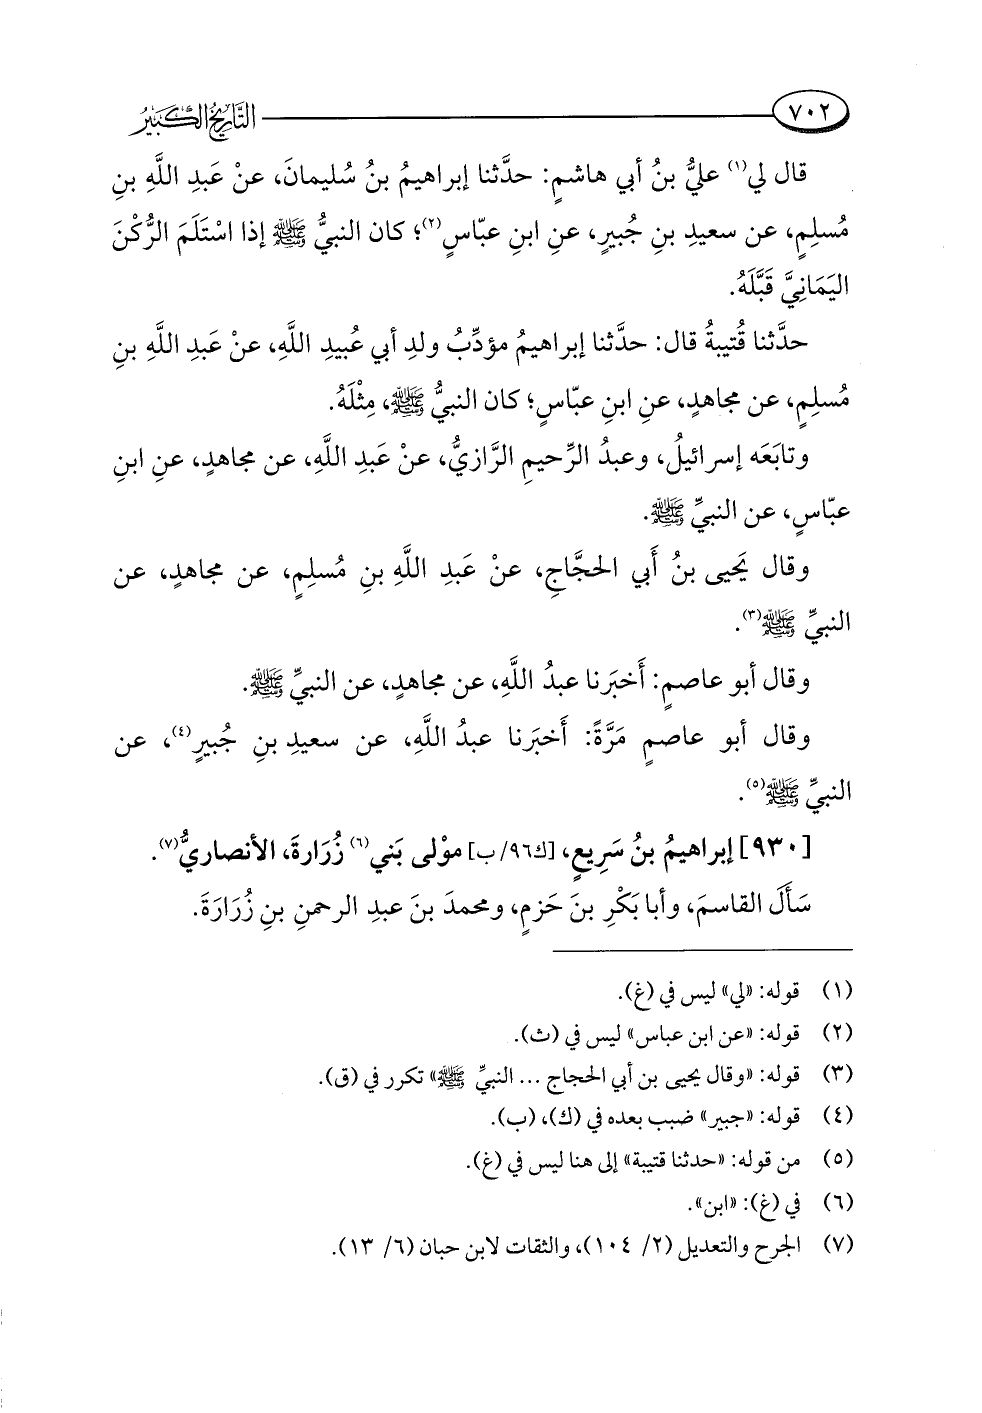 ٧٠٢ التَّارِيخُ الكَبِيرُ
قال لي(١) عليُّ بنُ أبي هاشمٍ: حدَّثنا إبراهيمُ بنُ سُليمانَ، عنْ عَبدِ اللَّهِ بنِ
مُسلِمٍ، عن سعيدِ بنِ جُبيرٍ، عنِ ابنِ عبّاسٍ(٢)؛ كان النبيُّ ﷺ إذا اسْتَلَمَ الرُّكْنَ
اليَمَانِيَّ قَبَّلَهُ.
حدَّثنا قُتيبةُ قال: حدَّثنا إبراهيمُ مؤدِّبُ ولدِ أبي عُبيدِ اللَّهِ، عنْ عَبدِ اللَّهِ بنِ
مُسلِمٍ، عن مجاهدٍ، عنِ ابنِ عبّاسٍ؛ كان النبيُّ ﷺ، مِثْلَهُ.
وتابَعَه إسرائيلُ، وعبدُ الرَّحيمِ الرَّازيُّ، عنْ عَبدِ اللَّهِ، عن مجاهدٍ، عنِ ابنِ
عبّاسٍ، عن النبيِّ ﷺ.
وقال يَحيى بنُ أَبي الحجَّاجِ، عنْ عَبدِ اللَّهِ بنِ مُسلِمٍ، عن مجاهدٍ، عن
النبيِّ ﷺ(٣).
وقال أبو عاصمٍ: أَخبَرنا عبدُ اللَّهِ، عن مجاهدٍ، عن النبيِّ ﷺ.
وقال أبو عاصمٍ مَرَّةً: أَخبَرنا عبدُ اللَّهِ، عن سعيدِ بنِ جُبيرٍ(٤)، عن
النبيِّ ﷺ(٥).
[٩٣٠] إبراهيمُ بنُ سَرِيعٍ، [ك٩٦/ ب] مؤلى بَني(٦) زُرَارةَ، الأنصاريُّ(٧).
سَأَلَ القاسمَ، وأبا بَكْرِ بنَ حَزمٍ، ومحمدَ بنَ عبدِ الرحمنِ بنِ زُرَارَةَ.
(١) قوله: «لي» ليس في (غ).
(٢) قوله: «عن ابن عباس» ليس في (ث).
(٣) قوله: «وقال يحيى بن أبي الحجاج ... النبيِّ ﷺ» تكرر في (ق).
(٤) قوله: «جبير» ضبب بعده في (ك)، (ب).
(٥) من قوله: «حدثنا قتيبة» إلى هنا ليس في (غ).
(٦) في (غ): «ابن».
(٧) الجرح والتعديل (٢/ ١٠٤)، والثقات لابن حبان (٦/ ١٣).